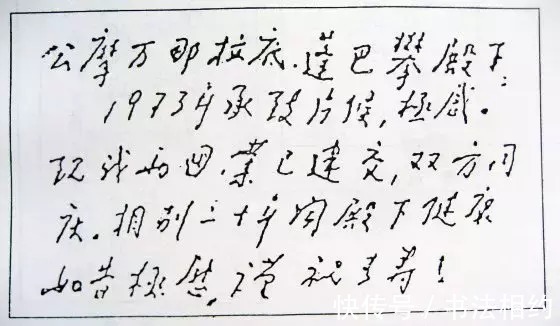 公摩万那拉底.蓬巴攀殿下:
1973年承致片候,极感。
现我两国,业已建交,双方同
庆。相别二十年间殿下健康
如昔极慰,谨祝青寿!
快传号 / 书法相约